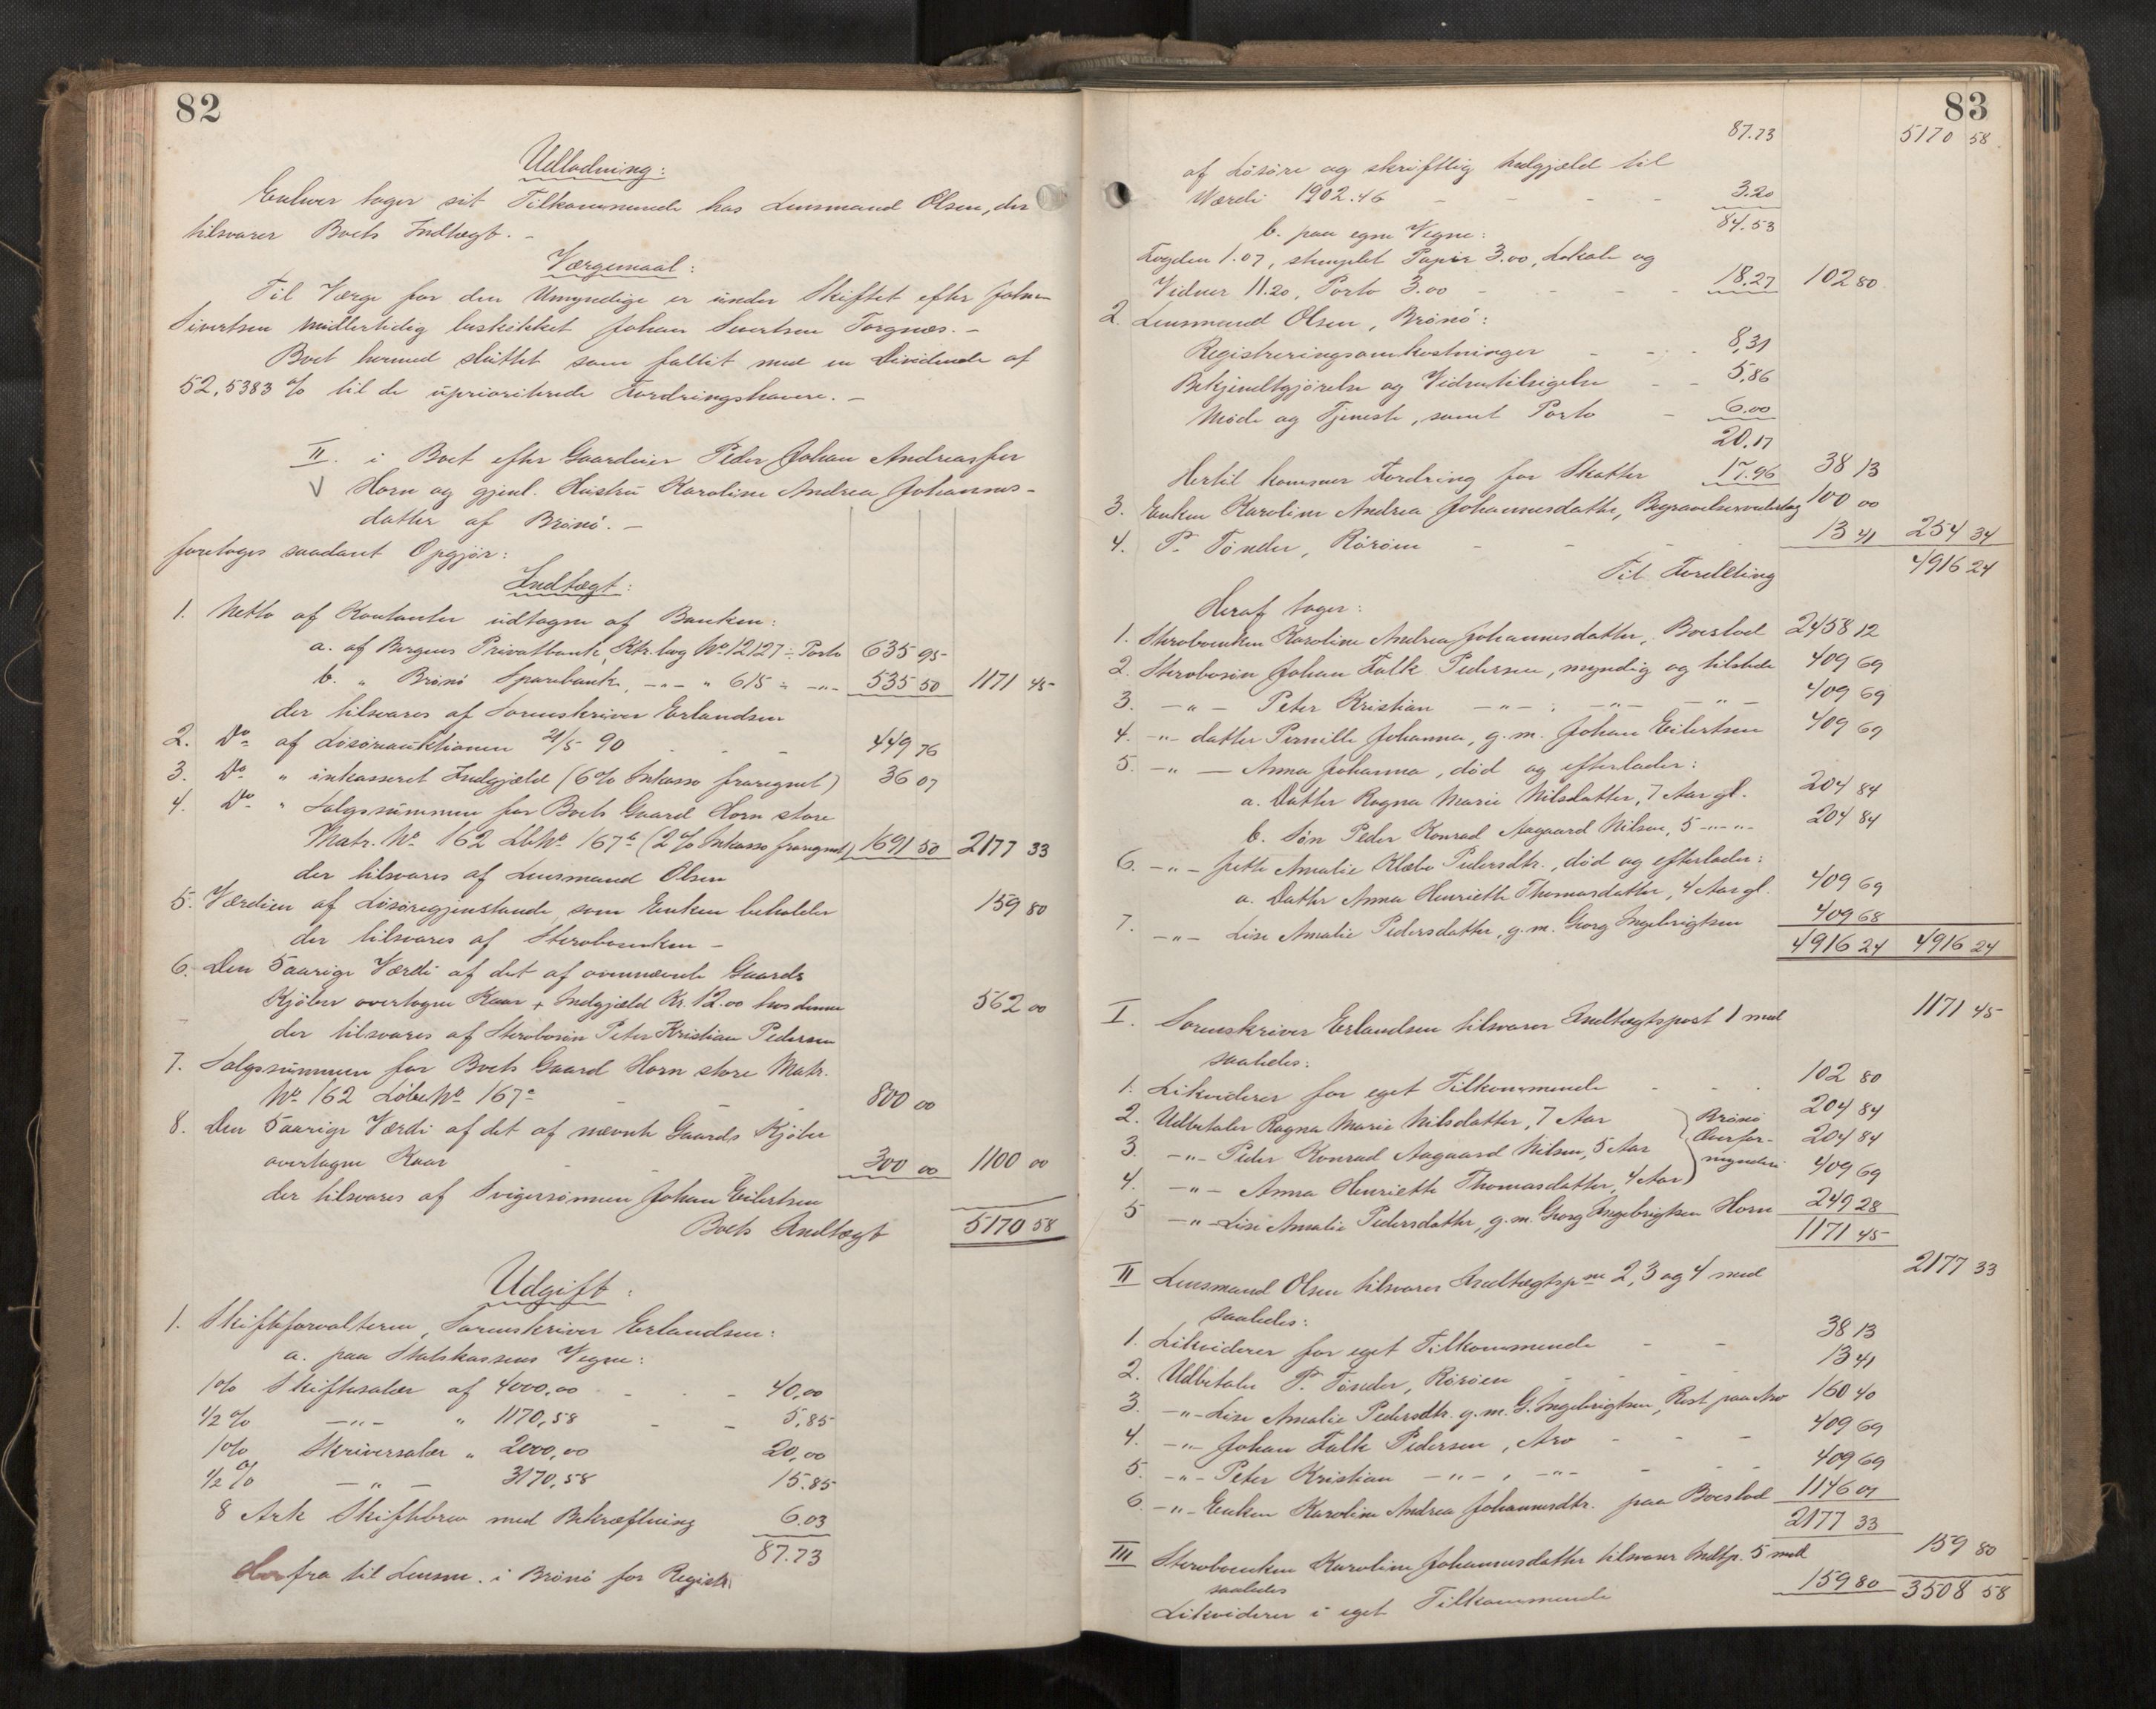 82
Udlodning:
Enhver tager sit Tilkommende hos Lensmand Olsen, der
tilsvarer Boets Indtægt. -
Værgemaal:
Til Værge for den Umyndige er under Skiftet efter Johan
Sivertsen midlertidig beskikket Johan Sivertsen Torgnæs. -
Boet hermed sluttet som fallit med en Dividende af
52,5383 % til de uprioriterede Fordringshavere. -
II. i Boet efter Gaardeier Peder Johan Andreassen
Horn og gjenl. Hustru Karoline Andrea Johannes-
datter af Brønø. -
foretoges saadant Opgjør:
Indtægt:
1. Netto af Kontanter udtagne af Banken:
a. af Bergens Privatbank, Ktr. bog No 12127 ÷ Porto 635 95
b. " Brønø Sparebank, -"- " 615 ÷ -"- 535 50 1171 45
der tilsvares af Sorenskriver Erlandsen
2. Do af Løsøreauktionen 21/5 90 - - - 449 76
3. Do " inkasseret Indgjæld (6% Inkasso fraregnet) 36 07
4. Do " Salgssummen for Boets Gaard Horn store
Matr. No 162 LbNo 167b (2% Inkasso fraregnet) 1691 50 2177 33
der tilsvares af Lensmand Olsen
5. Værdien af Løsøregjenstande som Enken beholder 159 80
der tilsvares af Sterboenken -
6. Den 5 aarige Værdi af det af ovennævnte Gaards
Kjøber overtagne Kaar + Indgjæld Kr. 12.00 hos denne 562 00
der tilsvares af Sterbosøn Peter Kristian Pedersen
7. Salgssummen for Boets Gaard Horn store Matr.
No 162 LøbeNo 167a - - - 800 00
8. Den 5 aarige Værdi af det af nævnte Gaards Kjøber
overtagne Kaar - - 300 00 1100 00
der tilsvares af Svigersønnen Johan Eilertsen
Boets Indtægt 5170 58
Udgift:
1. Skifteforvalteren, Sorenskriver Erlandsen:
a. paa Statskassens Vegne:
1% Skiftesalær af 4000,00 - - - 40,00
1/2% -"- " 1170,58 - - 5,85
1% Skriversalær " 2000,00 20,00
1/2% -"- 3170,58 15.85
8 Ark Skiftebrev med Bekræftning 6.03
87.73
derfra til Lensm. i Brønø for Registr.
83
87.73 5170 58
af Løsøre og skriftlig Indgjæld til
Værdi 1902.46 - - - - 3.20
84.53
b. paa egne Vegne:
Fogden 1.07, stemplet Papir 3.00, Lokale og
Vidner 11.20, Porto 3.00 - - - - 18.27 102 80
2. Lensmand Olsen, Brønø:
Registreringsomkostninger - - - 8,31
Bekjendtgjørelse og Vidnetilsigelse - - 5,86
Møde og Tjeneste, samt Porto - 6.00
20.17
Hertil kommer Fordring for Skatter 17.96 38 13
3. Enken Karoline Andrea Johannesdatter, Begravelsesvederlag 100 00
4. P. Tønder, Rørøen - - - 13 41 254 34
Til Fordeling 4916 24
Heraf tager:
1. Sterboenken Karoline Andrea Johannesdatter, Boeslod 2458 12
2. Sterbosøn Johan Falk Pedersen, myndig og tilstede 409 69
3. -"- Peter Kristian -"- , -"- -"- 409 69
4. -"- datter Pernille Johanna, g. m. Johan Eilertsen 409 69
5. -"- - Anna Johanna, død og efterlader:
a. Datter Ragna Marie Nilsdatter, 7 Aar gl. 204 84
b. Søn Peder Konrad Aagaard Nilsen, 5 -"- "- 204 84
6. -"- Jette Amalie Klæbo Pedersdtr., død og efterlader:
a. Datter Anna Henriette Thomasdatter, 4 Aar gl. 409 69
7. -"- Lise Amalie Pedersdatter, g. m. Georg Ingebrigtsen 409 68
4916 24 4916 24
I. Sorenskriver Erlandsen tilsvarer Indtægtspost 1 med 1171 45
saaledes:
1. Likviderer for eget Tilkommende - - - 102 80
2. Udbetaler Ragna Marie Nilsdatter, 7 Aar 204 84
3. -"- Peder Konrad Aagaard Nilsen, 5 Aar 204 84
4. -"- Anna Henriette Thomasdatter, 4 Aar 409 69
Brønø
Overfor-
mynderi
5 -"- Lise Amalie Pedersdatter, g. m. Georg Ingebrigtsen Horn 249 28
1171 45
II Lensmand Olsen tilsvarer Indtægtspne 2, 3 og 4 med 2177 33
saaledes:
1. Likviderer for eget Tilkommende - - 38 13
2. Udbetaler P. Tønder, Rørøen - - - 13 41
3. -"- Lise Amalie Pedersdtr. g. m. G. Ingebrigtsen, Rest paa Arv 160 40
4. -"- Johan Falk Pedersen, Arv - - - 409 69
5. -"- Peter Kristian -"- , -"- - - - 409 69
6. -"- Enken Karoline Andrea Johannesdtr. paa Boeslod 1146 01
2177 33
III Sterboenken Karoline Johannesdatter tilsvarer Indtp. 5 med 159 80
saaledes
Likviderer i eget Tilkommende 159 80 3508 58